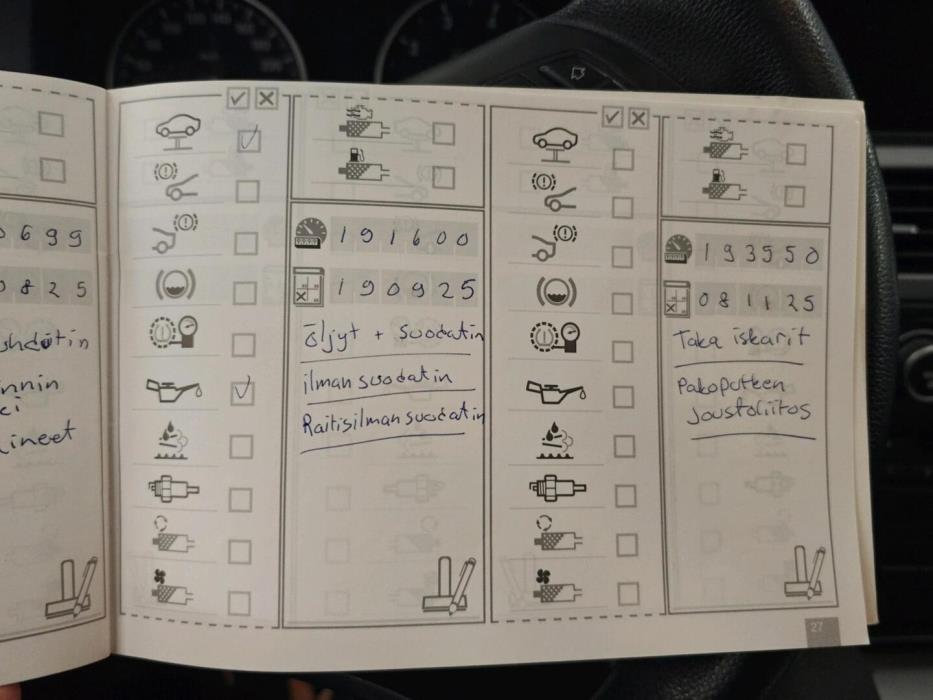 0 6 9 9
0 8 2 5
shdötin
nnin
ineet
1 9 1 6 0 0
1 9 0 9 2 5
öljyt + Suodatin
ilman suodatin
Raitisilman suodatin
1 9 3 5 5 0
0 8 1 1 2 5
Taka iskarit
Pakoputken
Joustoliitos
27